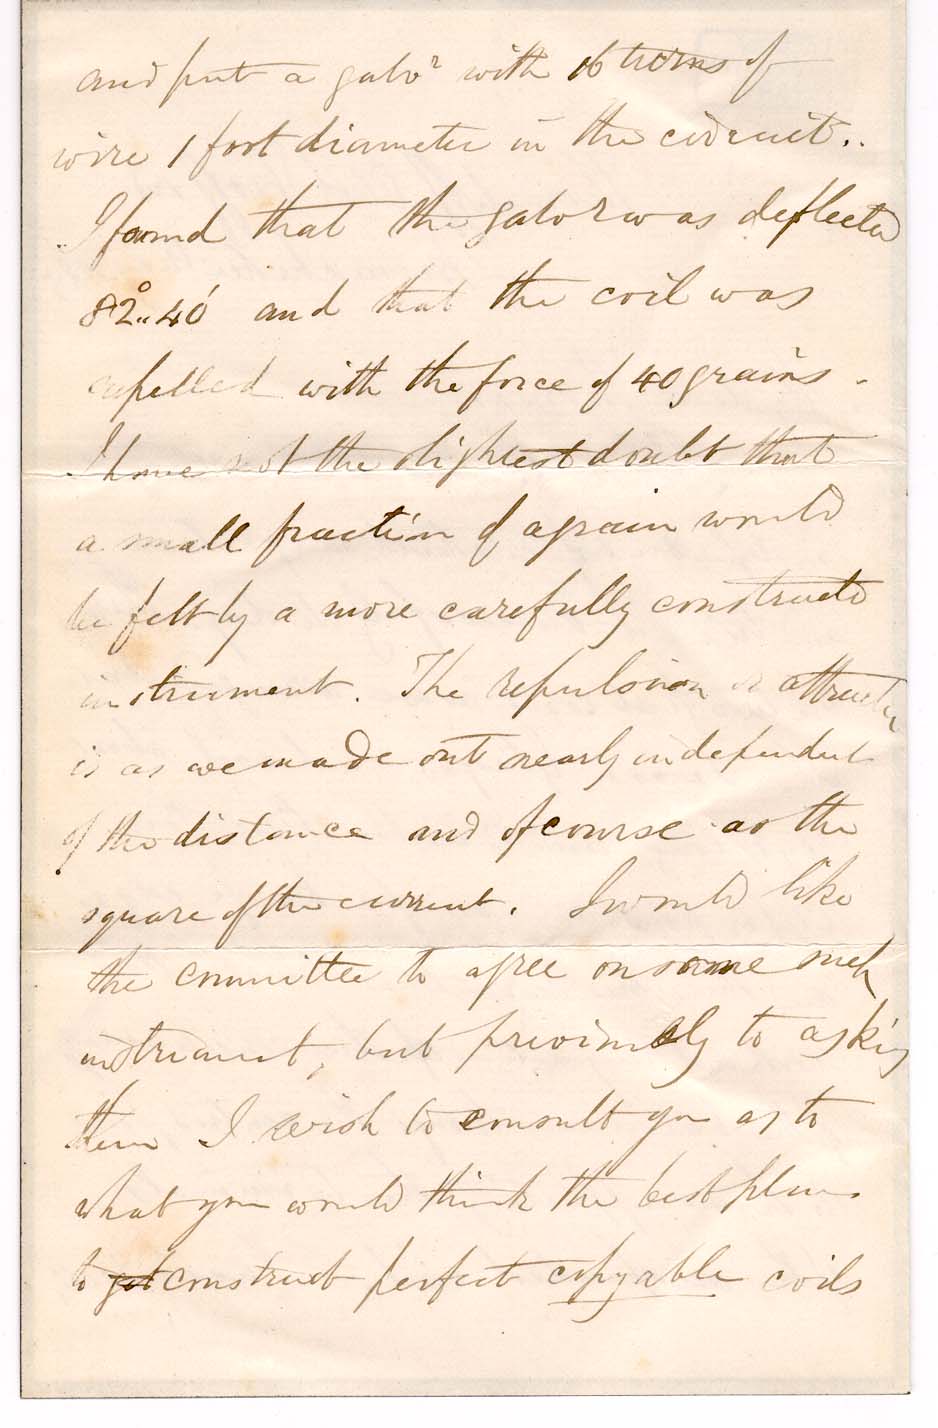 and put a galvr with 16 turns of
wire 1 foot diameter in the circuit..
I found that the galvr was deflected
82°..40' and that the coil was
repelled with the force of 40 grains.
I have not the slightest doubt that
a small fraction of a grain would
be felt by a more carefully constructed
instrument. The repulsion or attraction
is as we made out nearly independent
of the distance and of course as the
square of the current. I would like
the committee to agree on some such
instrument, but previously to asking
them I wish to consult you as to
what you would think the best plan
to get construct perfect copyable coils